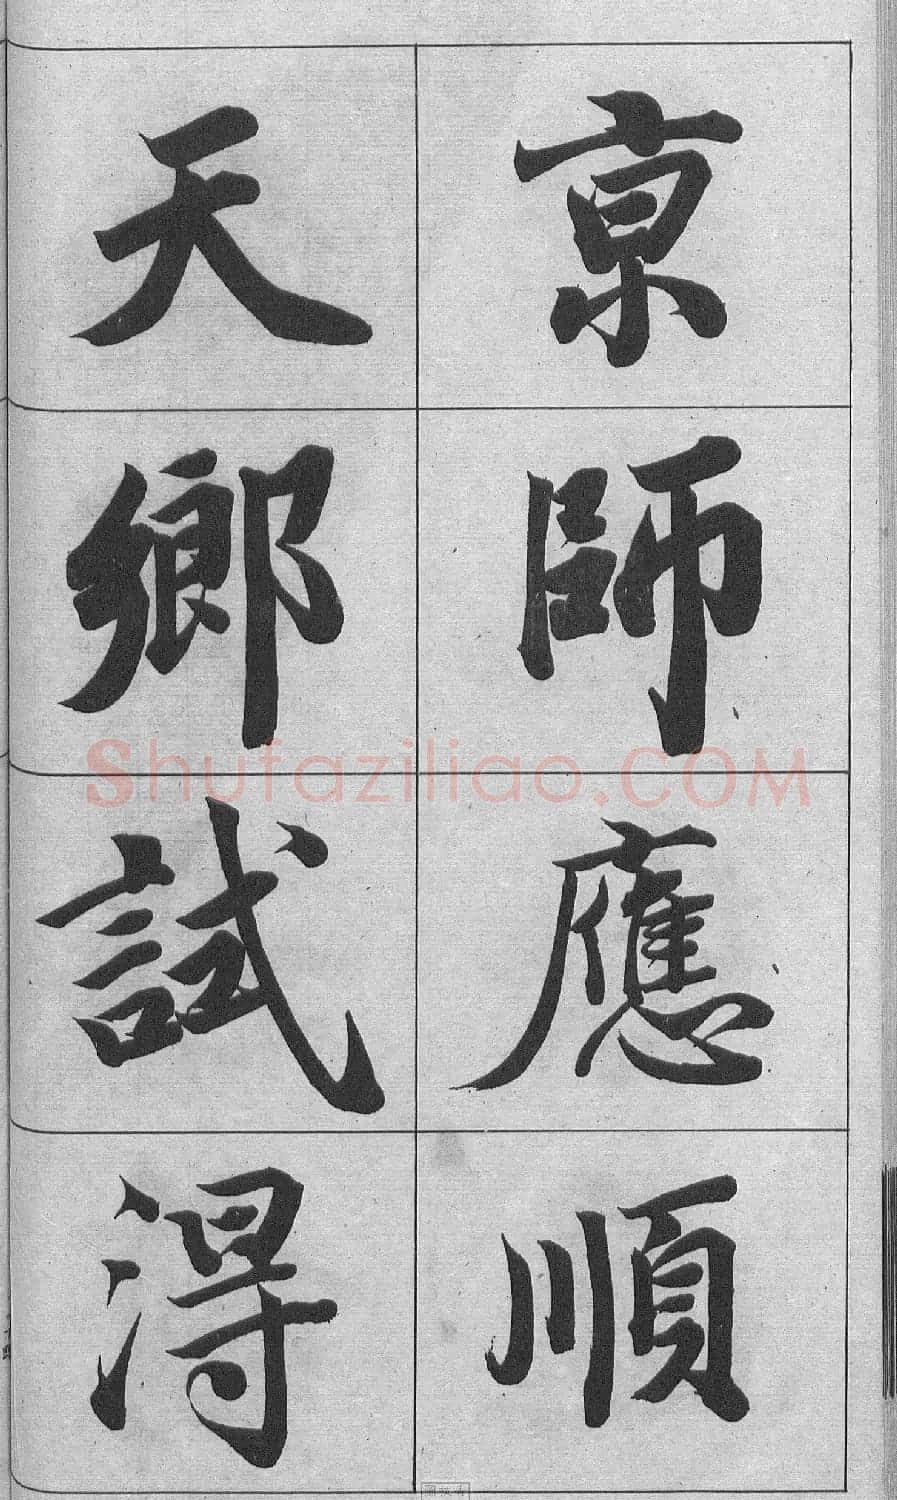 京師應順
天鄉試得
Shufaziliao.COM